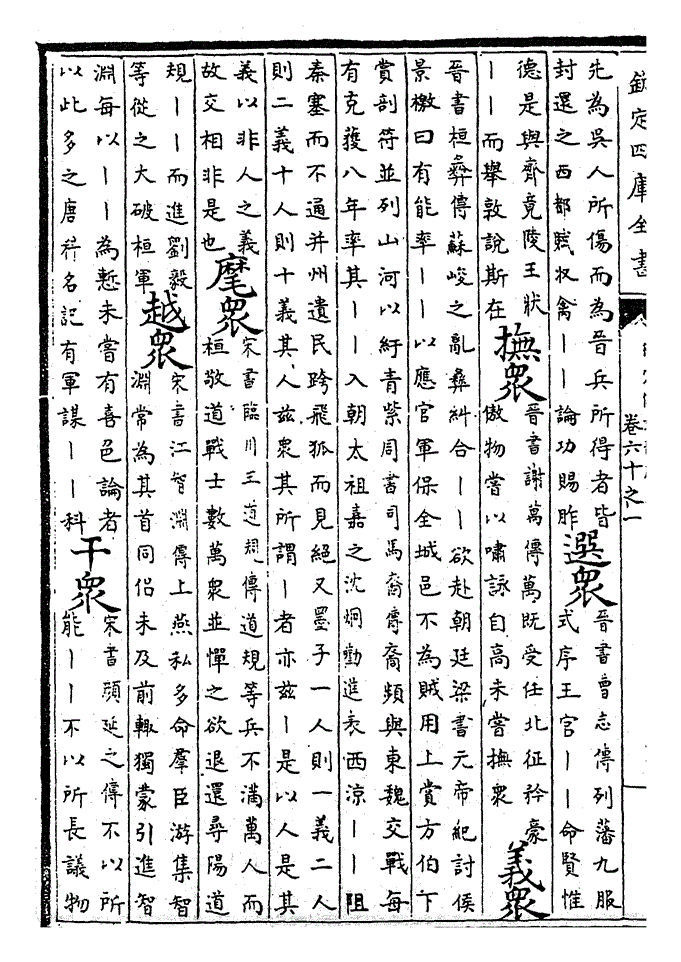 欽定四庫全書
卷六十之一
先為吳人所傷而為晉兵所得者皆
封還之西都賦收禽丨丨論功賜胙
選衆
晉書曹志傳列藩九服
式序王官丨丨命賢惟
德是與齊竟陵王狀
丨丨而舉敦說斯在
撫衆
晉書謝萬傳萬既受任北征矜豪
傲物嘗以嘯詠自高未嘗撫衆
義衆
晉書桓彝傳蘇峻之亂彝糾合丨丨欲赴朝廷梁書元帝紀討侯
景檄曰有能率丨丨以應官軍保全城邑不為賊用上賞方伯下
賞剖符並列山河以紆青紫周書司馬裔傳裔頻與東魏交戰每
有克獲八年率其丨丨入朝太祖嘉之沈炯勸進表西涼丨丨阻
秦塞而不通并州遺民跨飛狐而見絕又墨子一人則一義二人
則二義十人則十義其人兹衆其所謂丨者亦兹丨是以人是其
義以非人之義
故交相非是也
麾衆
宋書臨川王道規傳道規等兵不滿萬人而
桓敬道戰士數萬衆並憚之欲退還尋陽道
規丨丨而進劉毅
等從之大破桓軍
越衆
宋書江智淵傳上燕私多命羣臣游集智
淵常為其首同侶未及前輙獨蒙引進智
淵每以丨丨為慙未嘗有喜色論者
以此多之唐科名記有軍謀丨丨科
干衆
宋書顔延之傳不以所
能丨丨不以所長議物